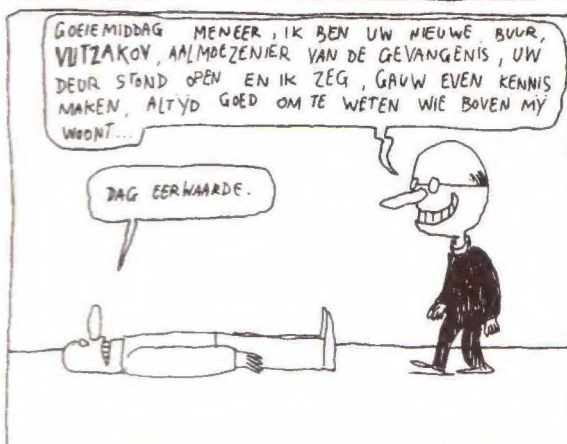 GOEIEMIDDAG MENEER, IK BEN UW NIEUWE BUUR,
VUTZAKOV, AALMOEZENIER VAN DE GEVANGENIS, UW
DEUR STOND OPEN EN IK ZEG, GAUW EVEN KENNIS
MAKEN, ALTYD GOED OM TE WETEN WIE BOVEN MY
WOONT...
DAG EERWAARDE.